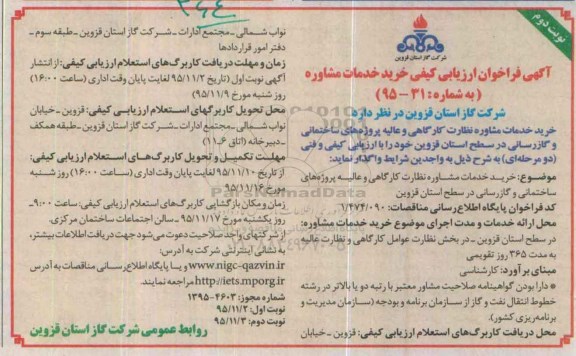 نوبت دوم
شرکت گاز استان قزوین
آگهی فراخوان ارزیابی کیفی خرید خدمات مشاوره
(به شماره: ۳۱-۹۵)
شرکت گاز استان قزوین در نظر دارد
خرید خدمات مشاوره نظارت کارگاهی و عالیه پروژه‌های ساختمانی
و گازرسانی در سطح استان قزوین خود را با ارزیابی کیفی و فنی
(دو مرحله‌ای) به شرح ذیل به واجدین شرایط واگذار نماید:
موضوع: خرید خدمات مشاوره نظارت کارگاهی و عالیه پروژه‌های
ساختمانی و گازرسانی در سطح استان قزوین
کد فراخوان پایگاه اطلاع رسانی مناقصات:
محل ارائه خدمات و مدت اجرای موضوع خرید خدمات مشاوره:
در سطح استان قزوین - در بخش نظارت عوامل کارگاهی و نظارت عالیه
به مدت ۳۶۵ روز تقویمی
مبنای برآورد: کارشناسی
* دارا بودن گواهینامه صلاحیت مشاور معتبر با رتبه دو یا بالاتر در رشته
خطوط انتقال نفت و گاز از سازمان برنامه و بودجه (سازمان مدیریت و
برنامه‌ریزی کشور).
محل دریافت کاربرگ‌های استعلام ارزیابی کیفی: قزوین - خیابان
نواب شمالی - مجتمع ادارات - شرکت گاز استان قزوین - طبقه سوم -
دفتر امور قراردادها
زمان و مهلت دریافت کاربرگ‌های استعلام ارزیابی کیفی: از انتشار
آگهی نوبت اول (تاریخ ۹۵/۱۱/۲) لغایت پایان وقت اداری (ساعت ۱۶:۰۰)
روز شنبه مورخ ۹۵/۱۱/۹)
محل تحویل کاربرگهای استعلام ارزیابی کیفی: قزوین - خیابان
نواب شمالی - مجتمع ادارات - شرکت گاز استان قزوین - طبقه همکف
- دبیرخانه (اتاق ۱۱-۶)
مهلت تکمیل و تحویل کاربرگ‌های استعلام ارزیابی کیفی:
از تاریخ ۹۵/۱۱/۱۰ لغایت پایان وقت اداری (ساعت ۱۶:۰۰) روز شنبه
مورخ ۹۵/۱۱/۱۶
زمان و مکان بازگشایی کاربرگ‌های استعلام ارزیابی کیفی: ساعت ۹:۰۰
روز یکشنبه مورخ ۹۵/۱۱/۱۷ - سالن اجتماعات ساختمان مرکزی.
از شرکتهای واجد صلاحیت دعوت می‌شود جهت دریافت اطلاعات بیشتر،
به نشانی اینترنتی شرکت به آدرس:
www.nigc-qazvin.ir و یا پایگاه اطلاع‌رسانی مناقصات به آدرس
http://iets.mporg.ir مراجعه نمایند.
شماره مجوز: ۱۳۹۵-۴۶۰۳
نوبت اول: ۹۵/۱۱/۲
نوبت دوم: ۹۵/۱۱/۳
روابط عمومی شرکت گاز استان قزوین